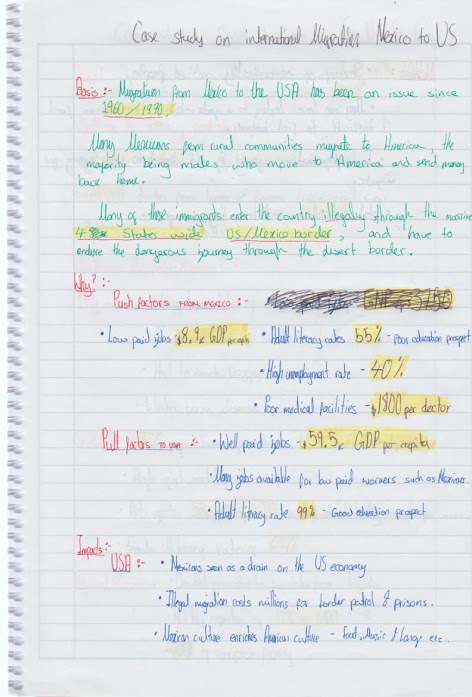 Case study on international Migration Mexico to US
Basis :- Migration from Mexico to the USA has been an issue since
1960/1970.
Many Mexicans from rural communities migrate to America, the
majority being males who move to America and send money
back home.
Many of these immigrants enter the country illegally through the massive
4 States wide US/Mexico border, and have to
endure the dangerous journey through the desert border.
Why? :-
Push factors FROM MEXICO :-
• Low paid jobs $8.9K GDP per capita • Adult literacy rates 55% - Poor education prospect
• High unemployment rate - 40%
• Poor medical facilities - $1800 per doctor
Pull factors TO USA :- • Well paid jobs - $59.5K GDP per capita
• Many jobs available for low paid workers such as Mexicans
• Adult literacy rate 99% - Good education prospect
Impacts :-
USA :- • Mexicans seen as a drain on the US economy
• Illegal migration costs millions for border patrol & prisons.
• Mexican culture enriches American culture - food, Music & Lang etc.